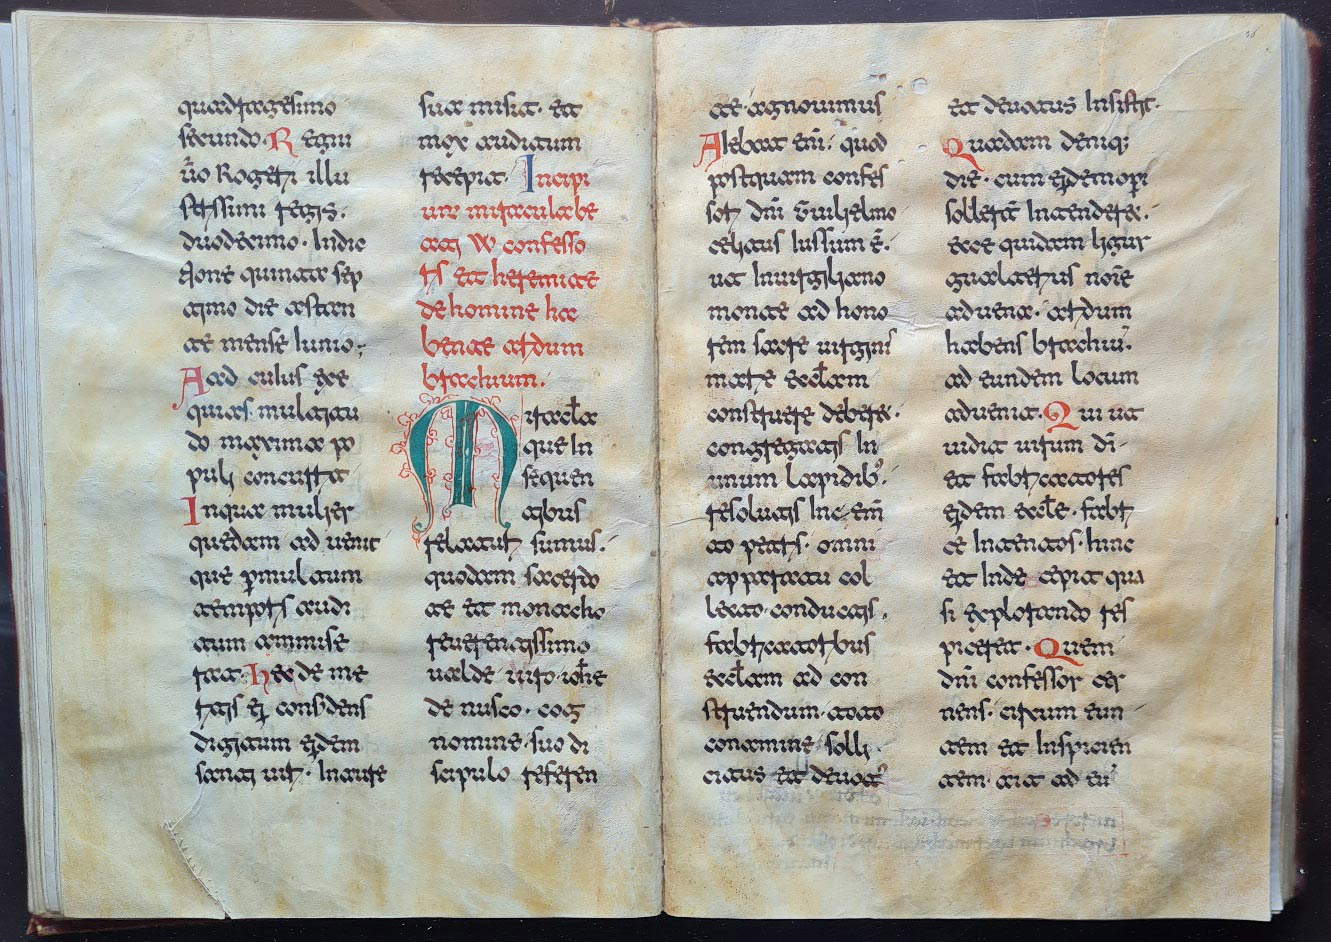 quadragesimo
secundo. Regni
ũo Rogerii illu
strissimi regis.
duodecimo. Indic
tione quinta sep
timo die astan
te mense Iunio.
Ad cuius exe
quias. multitu
do maxima po
puli concurrit.
Inqua mulier
quedam aduenit
que p multum
temporis audi
tum ammise
rat. Hec de me
ritis ei considens
digitum eidem
sancti uiri. Inaure
sua misit. et
mox auditum
recepit. Incipi
unt miracula be
ati W confesso
ris et heremite
de homine ha
bente aridum
brachium.
Miracla
que In
sequen
tibus
relaturi sumus.
quodam sacerdo
te et monacho
reuerentissimo
ualde uiro iohe
de nusco. cog
nomine. suo di
scipulo referen
te. agnouimus
Aiebat eni. quod
postquam confes
sori dni Guilhelmo
celitus iussum ē.
ut Inuirgiliano
monte ad hono
rem sancte uirginis
marie ecclam
construere deberet.
congregatis In
unum lapidib;
resolutis Inc em
to petris. omni
apparatu col
lecto. conductis.
fabricatoribus
ecclam ad con
struendum. toto
conamine. solli
citus et deuot
et deuotus Insistit.
Quadam deniq;
die. cum eidem opi
sollerti Intenderet.
ecce quidam ligur
gualterius noīe
aduena. aridum
habens brachiū.
ad eundem locum
aduenit. Qui ut
uidit uirum dī
et fabricatores
eidem eccle. fabri
ce Intentos. hinc
et Inde cepit qua
si explorando res
picere. Quem
dni confessor cer
nens. circum eun
tem et Inspicien
tem. ait ad eū